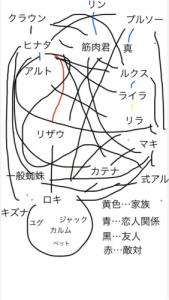 リン
クラウン
プルソー
ヒナタ
筋肉君
真
アルト
ルクス
ライラ
リラ
リザウ
マキ
カテナ
一般蜘蛛
式アル
ロキ
キズナ
黄色…家族
ユグ
ジャック
青…恋人関係
カルム
黒…友人
ペット
赤…敵対